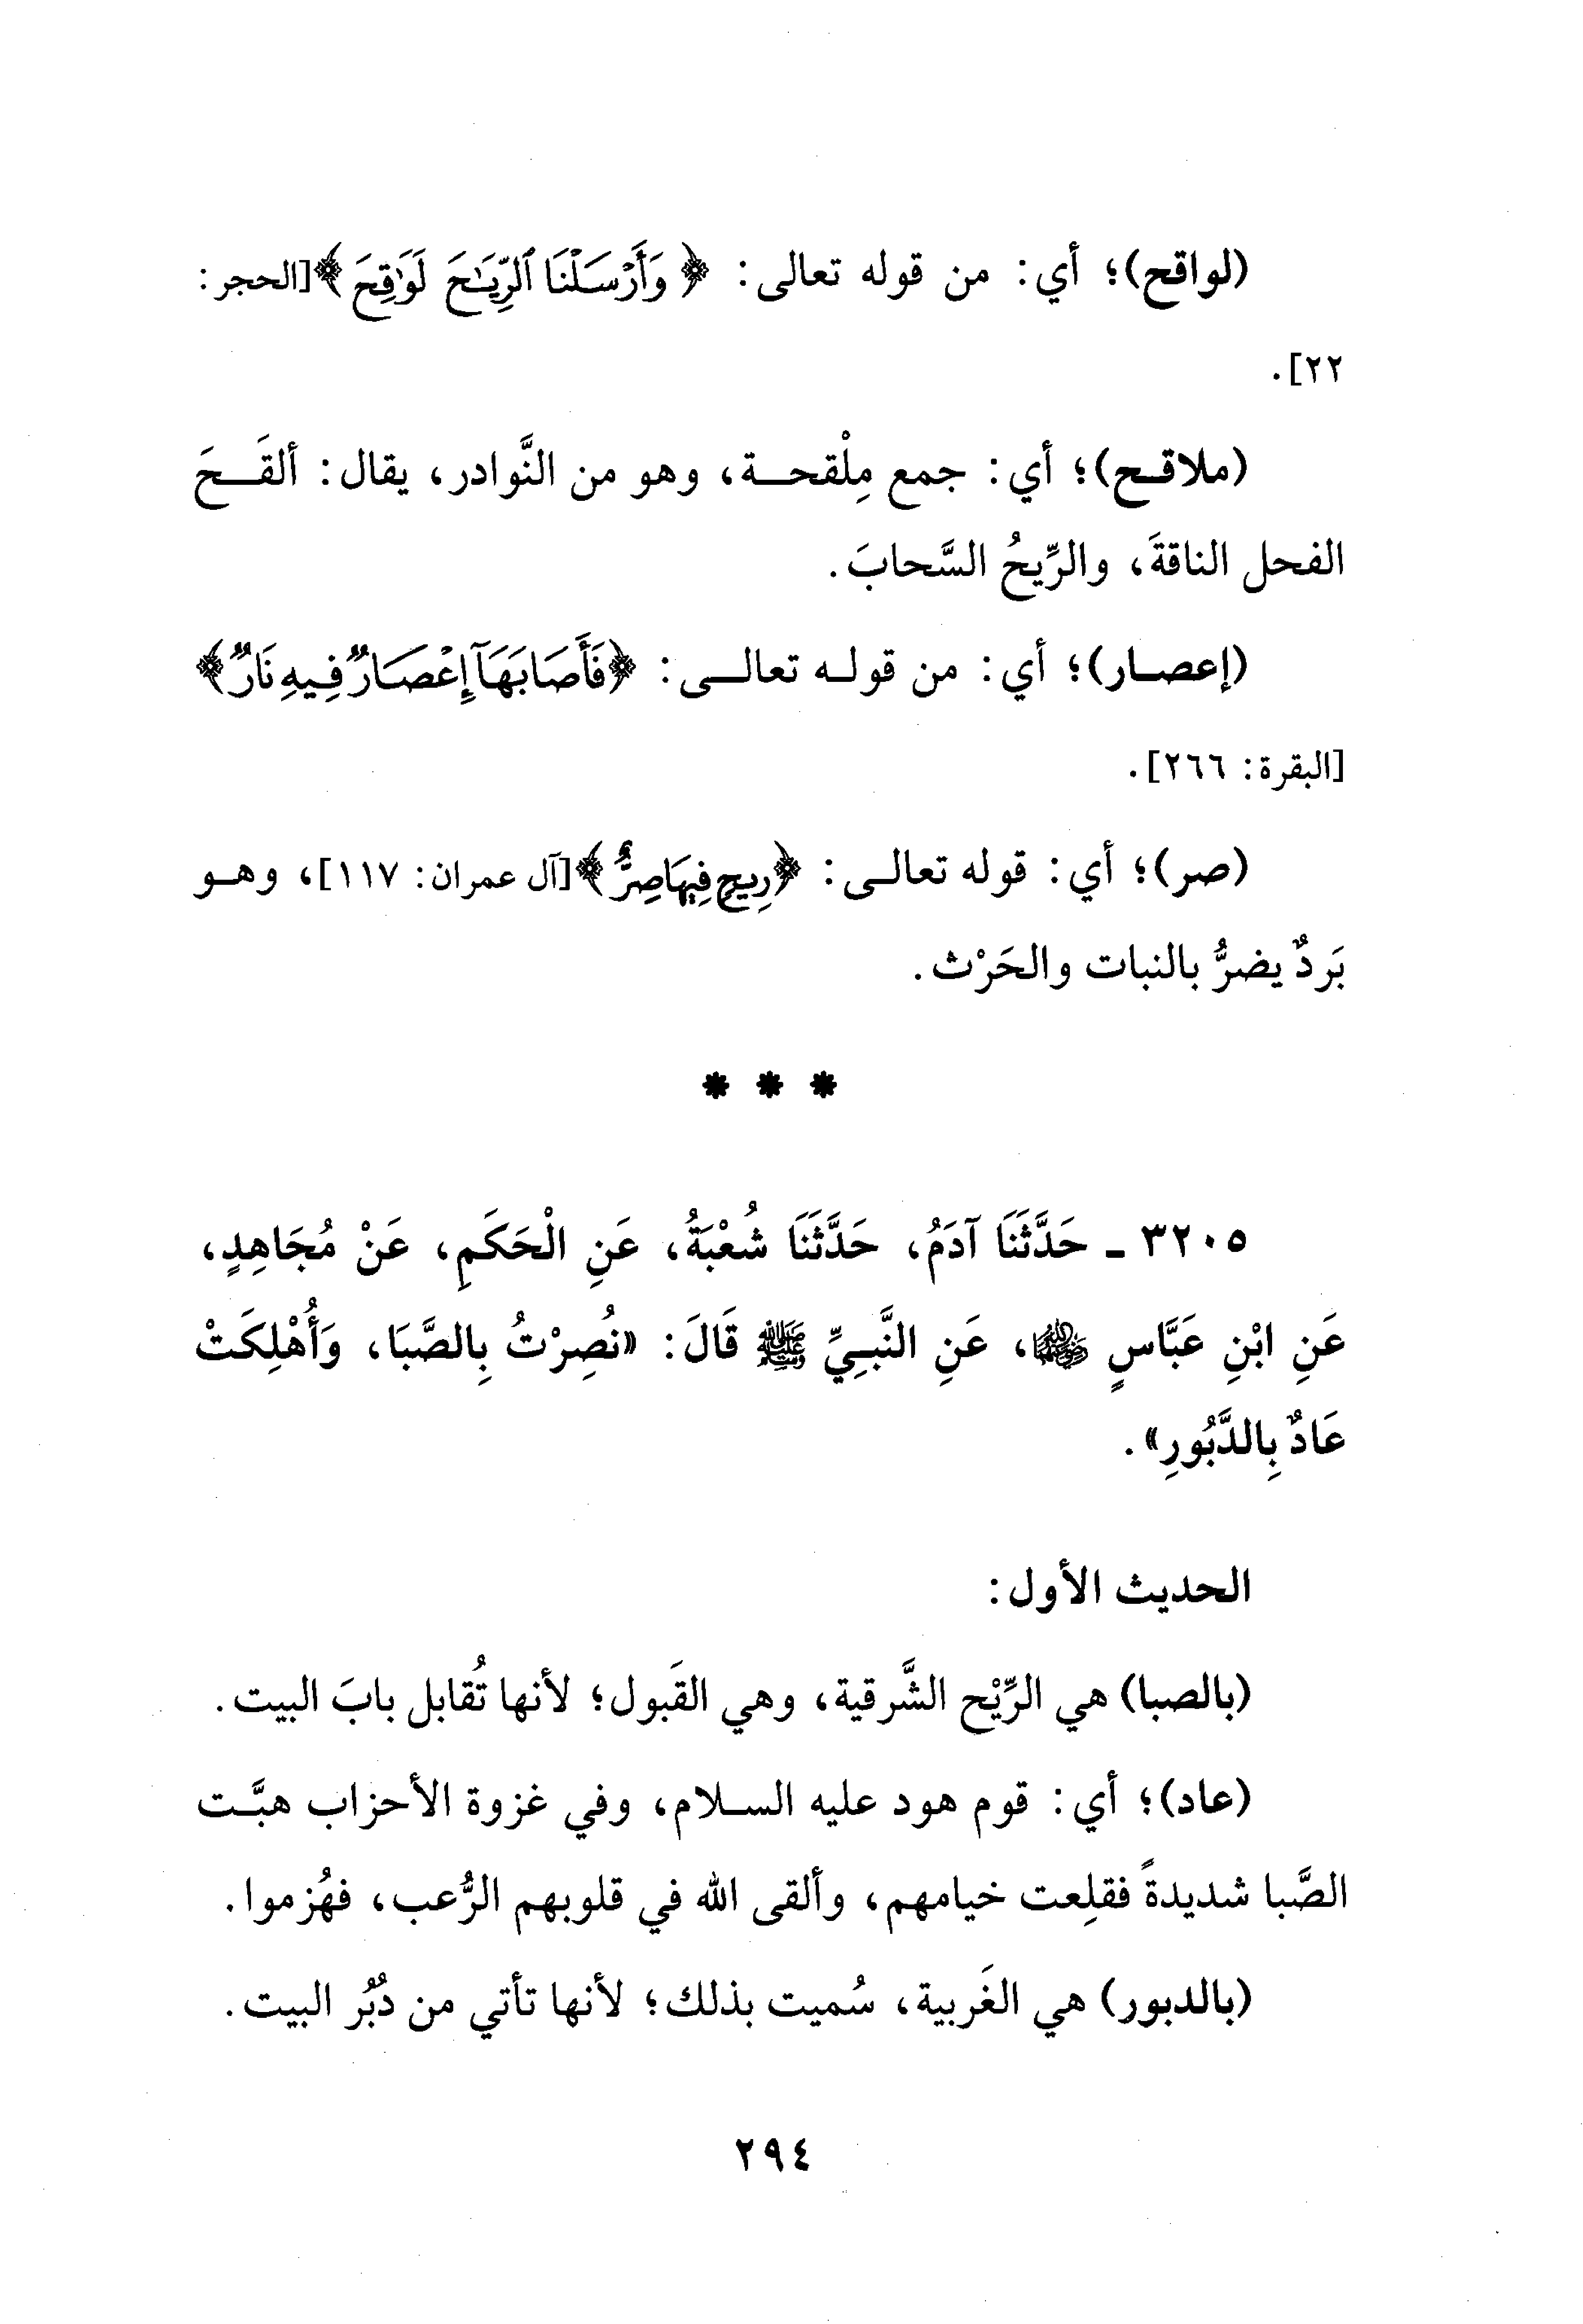 (لواقح)؛ أي: من قوله تعالى: ﴿وَأَرْسَلْنَا ٱلرِّيَـٰحَ لَوَٰقِحَ﴾[الحجر:
٢٢].
(ملاقح)؛ أي: جمع مِلْقحة، وهو من النَّوادر، يقال: ألقَحَ
الفحل الناقةَ، والرِّيحُ السَّحابَ.
(إعصار)؛ أي: من قوله تعالى: ﴿فَأَصَابَهَآ إِعْصَارٌ فِيهِ نَارٌ﴾
[البقرة: ٢٦٦].
(صر)؛ أي: قوله تعالى: ﴿رِيحٍ فِيهَا صِرٌّ﴾[آل عمران: ١١٧]، وهو
بَردٌ يضرُّ بالنبات والحَرْث.
* * *
٣٢٠٥ ـ حَدَّثَنَا آدَمُ، حَدَّثَنَا شُعْبَةُ، عَنِ الْحَكَمِ، عَنْ مُجَاهِدٍ،
عَنِ ابْنِ عَبَّاسٍ رضي الله عنهما، عَنِ النَّبِيِّ ﷺ قَالَ: «نُصِرْتُ بِالصَّبَا، وَأُهْلِكَتْ
عَادٌ بِالدَّبُورِ».
الحديث الأول:
(بالصبا) هي الرِّيْح الشَّرقية، وهي القَبول؛ لأنها تُقابل بابَ البيت.
(عاد)؛ أي: قوم هود عليه السلام، وفي غزوة الأحزاب هبَّت
الصَّبا شديدةً فقلِعت خيامهم، وألقى الله في قلوبهم الرُّعب، فهُزموا.
(بالدبور) هي الغَربية، سُميت بذلك؛ لأنها تأتي من دُبُر البيت.
٢٩٤